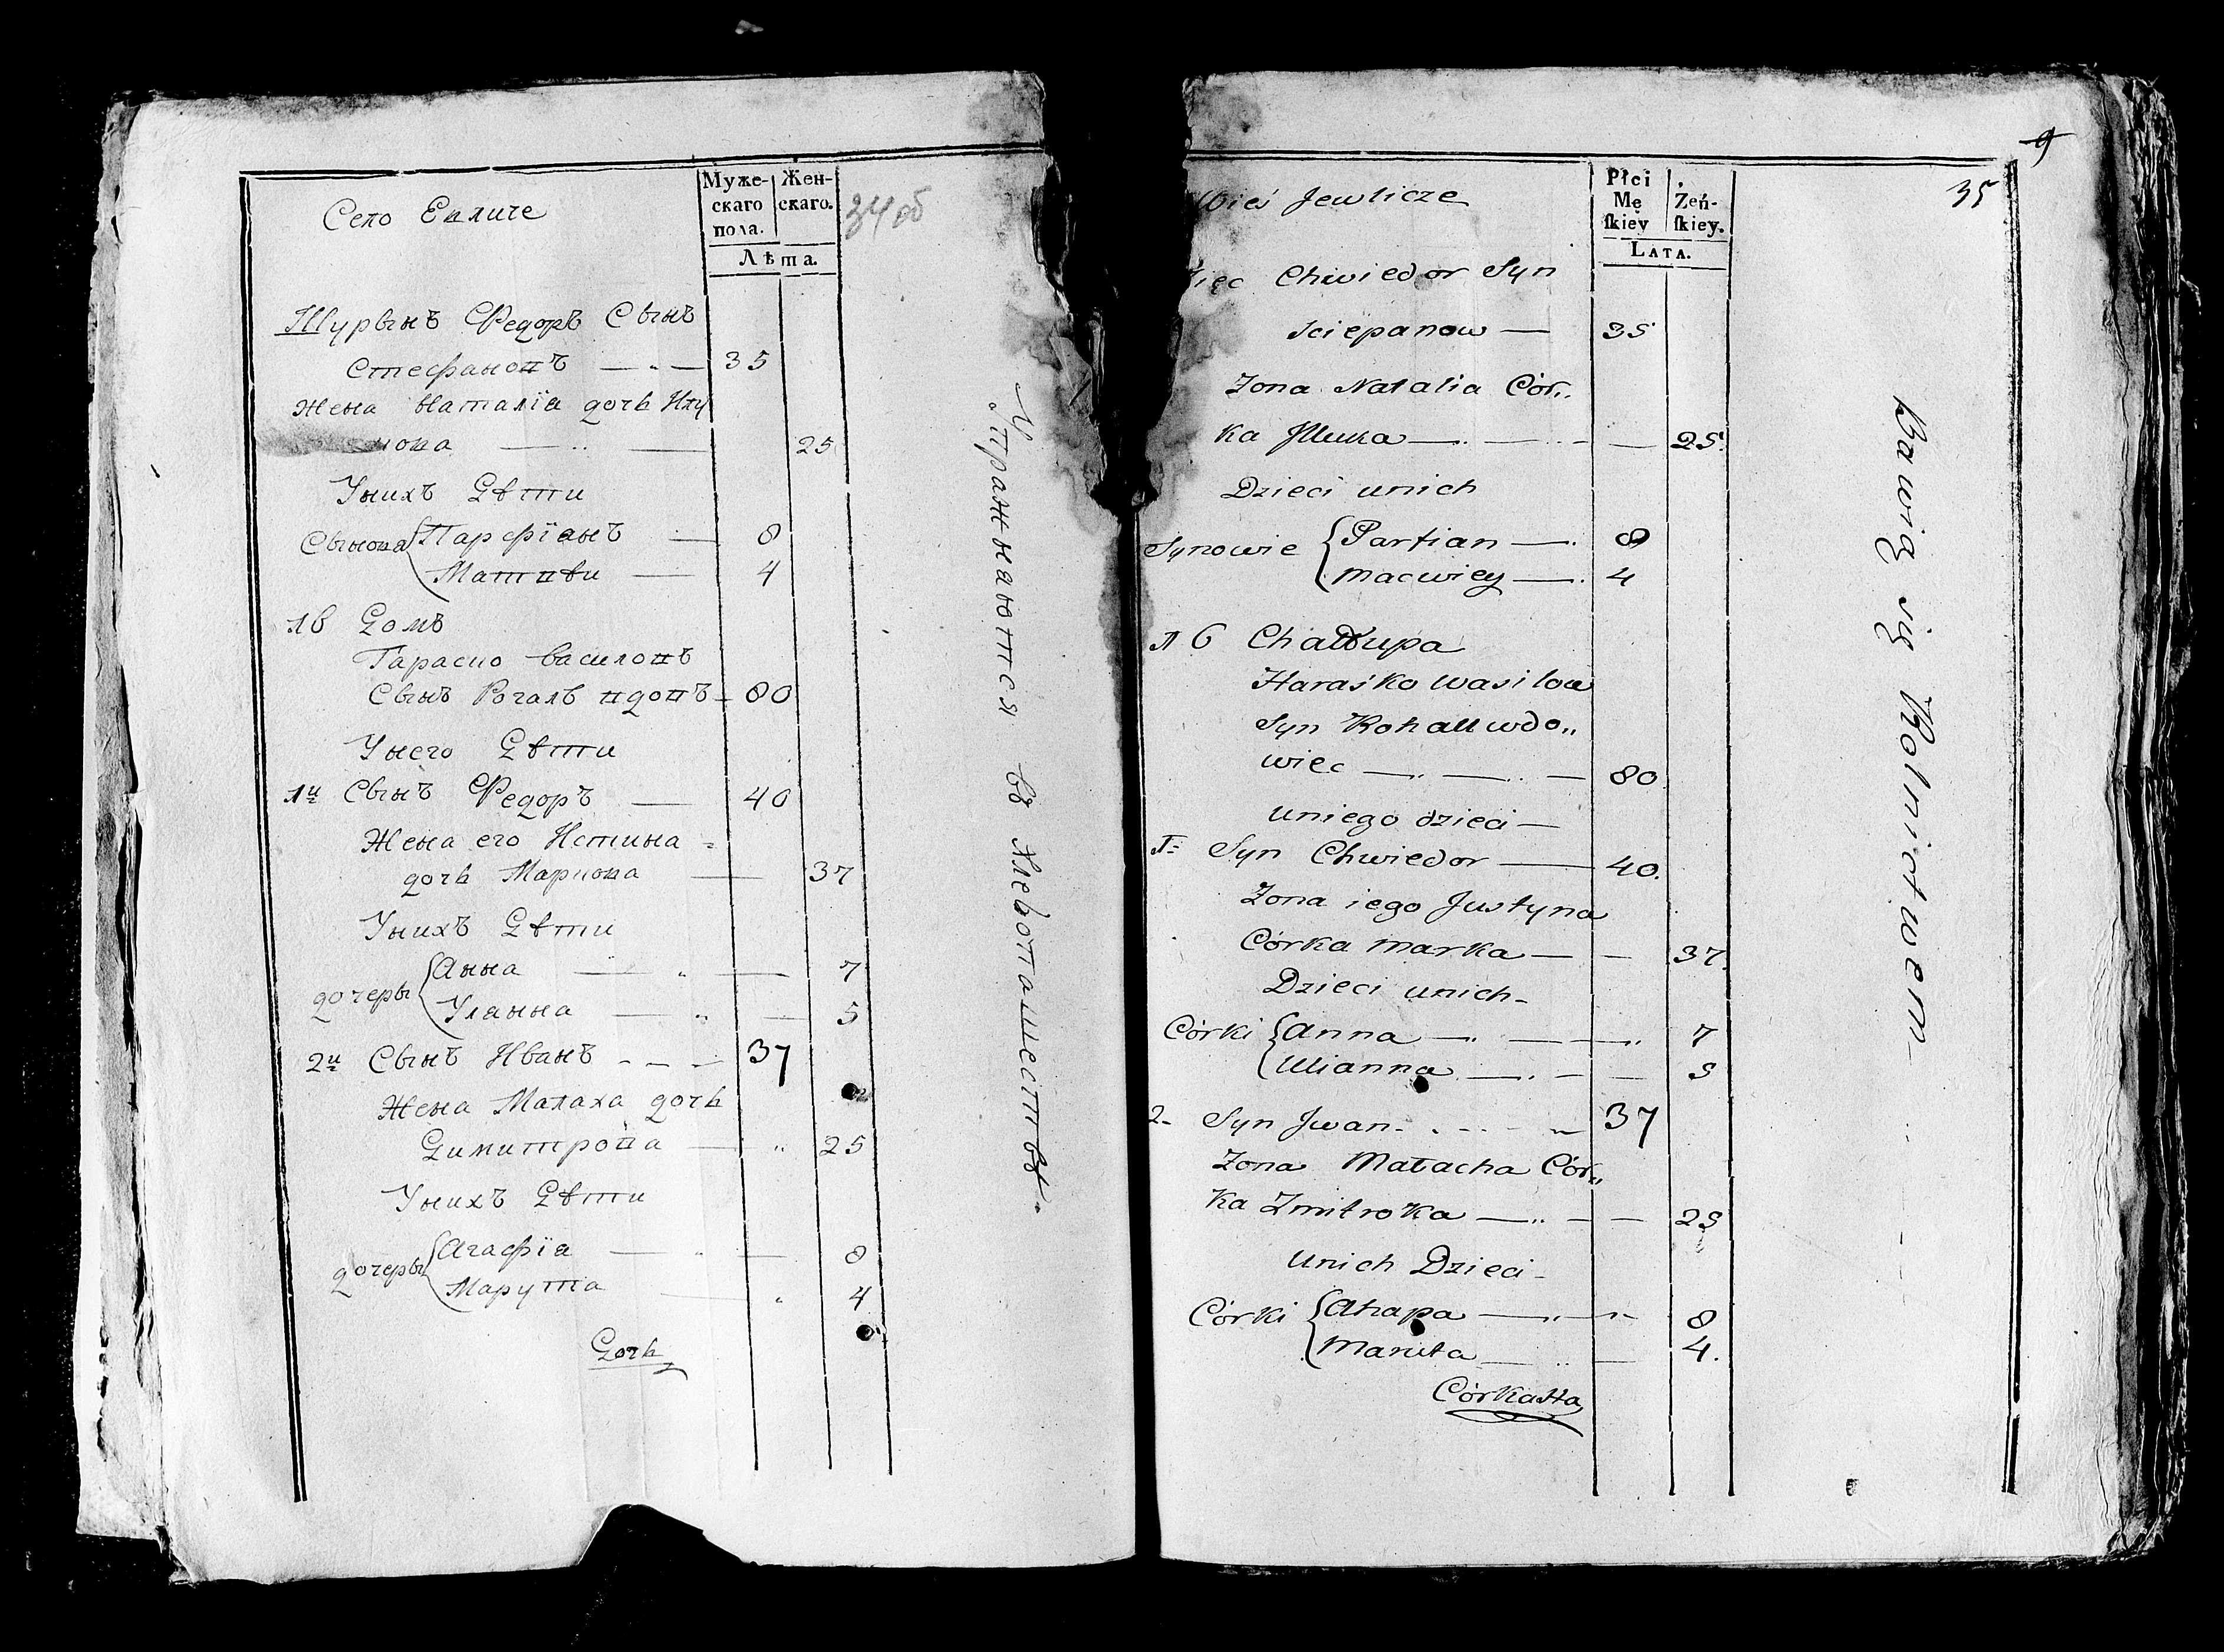 Село Евличе
Муже-
скаго
пола.
Жен-
скаго.
Лѣта.
34 об
Шурынъ Федоръ Сынъ
Стефановъ — " — 35
Жена Наталіа дочь Илу
нова — " — 25
Унихъ Дѣти
Сынова { Парфіанъ — 8
Матвѣи — 4
№ 6 Домъ
Гараско Василовъ
Сынъ Рогаль вдовъ — 80
Унего Дѣти
1й Сынъ Федоръ — 40
Жена его Истина
дочь Маркова — 37
Унихъ Дѣти
дочеры { Анна — " — 7
Улянна — " — 5
2й Сынъ Иванъ - - - 37
Жена Малаха дочь
Димитрова — " 25
Унихъ Дѣти
дочеры { Агафіа — " — 8
Марута — " 4
Дочь
Упражнаются въ Хлебопашествѣ.
9
35
Wieś Jewlicze
Płci
Mę
ſkiey
Żeń-
ſkiey.
LATA.
Chwiedor Syn
Sciepanow — 35
Zona Natalia Cór,,
ka — " — 25.
Dzieci unich
Synowie { Parfian — 8
Macwiey — 4
№ 6 Chałupa
Haraśko Wasilow
Syn Rohal wdo,,
wiec — " — " — 80
uniego dzieci —
1= Syn Chwiedor — 40.
Zona iego Justyna
Córka Marka — — 37.
Dzieci unich -
Córki { Anna — " — — 7
Ulianna — . — — 5
2- Syn Jwan - . - - - 37
Zona Małacha Cór,,
ka Zmitroka — " — — 25
Unich Dzieci -
Córki { Ahapa — " — 8
Maruta — " — 4.
Córka
Bawią się Rolnictwem -